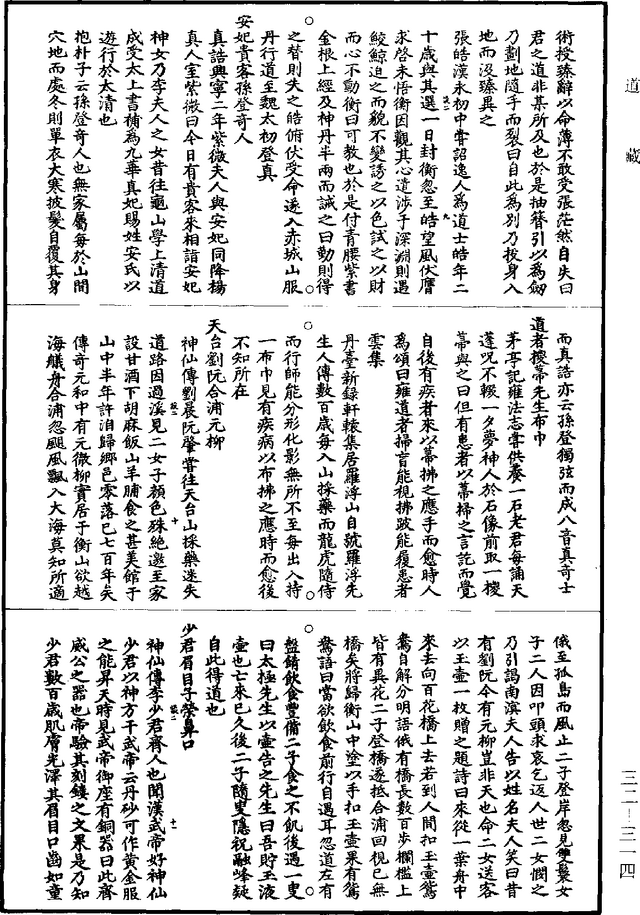 道藏
術授臻辭以命薄不敢受張茫然自失曰
君之道非某所及也於是抽簪引以爲劒
乃劃地隨手而裂曰自此爲別乃投身入
地而沒臻異之
張皓漢永初中嘗詔逸人爲道士皓年二
十歲與其選一日封衡忽至皓望風伏膺
求啓未悟衡因觀其心遣涉于深淵則遇
鮫鯨迫之而貌不變誘之以色試之以財
而心不動衡曰可教也於是付青腰紫書
金根上經及神丹半兩而誡之曰動則得
之替則失之皓俯伏受命遂入赤城山服
丹行道至魏太初登真
安妃貴客孫登奇人
真誥興寧二年紫微夫人與安妃同降楊
真人室紫微曰今日有貴客來相詣安妃
神女乃李夫人之女昔往龜山學上清道
成受太上書補爲九華真妃賜姓安氏以
遊行於太清也
抱朴子云孫登奇人也無家屬每於山間
穴地而處冬則單衣大寒披髮自覆其身
而真誥亦云孫登獨弦而成八音真奇士
道者椶蔕先生布巾
茅亭記雍法志嘗供養一石老君每誦天
蓬呪不輟一夕夢神人於石像前取一椶
蔕與之曰但有患者以蔕掃之言訖而覺
自後有疾者來以蔕拂之應手而愈時人
爲頌曰雍道者掃盲能視拂跛能履患者
雲集
丹臺新錄軒轅集居羅浮山自號羅浮先
生人傳數百歲每入山採藥而龍虎隨侍
而行師能分形化影無所不至每出入持
一布巾見有疾病以布拂之應時而愈後
不知所在
天台劉阮合浦元柳
神仙傳劉晨阮肇嘗往天台山採藥迷失
道路因過溪見二女子顏色殊絕邀至家
設甘酒下胡麻飯山羊脯食之甚美館于
山中半年許洎歸鄉邑零落已七百年矣
傳奇元和中有元微柳實居于衡山欲越
海艤舟合浦忽颶風飄入大海莫知所適
俄至孤島而風止二子登岸忽見雙鬟女
子二人因叩頭求哀乞返人世二女憫之
乃引謁南溟夫人告以姓名夫人笑曰昔
有劉阮今有元柳豈非天也命二女送客
以玉壺一枚贈之題詩曰來從一葉舟中
來去向百花橋上去若到人間扣玉壺鴛
鴦自解分明語俄有橋長數百步欄檻上
皆有異花二子登橋遂抵合浦回視已無
橋矣將歸衡山中塗以手扣玉壺果有鴛
鴦語曰當欲飲食前行自遇耳忽道左有
盤餚飲食豐備二子食之不飢後遇一叟
曰太極先生以壺告之先生曰吾貯玉液
壺也亡來已久後二子隨叟隱祝融峰疑
自此得道也
少君眉目子榮鼻口
神仙傳李少君齊人也聞漢武帝好神仙
少君以神方干武帝云丹砂可作黃金服
之能昇天時見武帝御座有銅器曰此齊
威公之器也帝驗其刻鏤之文果是乃知
少君數百歲肌膚光澤其眉目口齒如童
三二—三一四